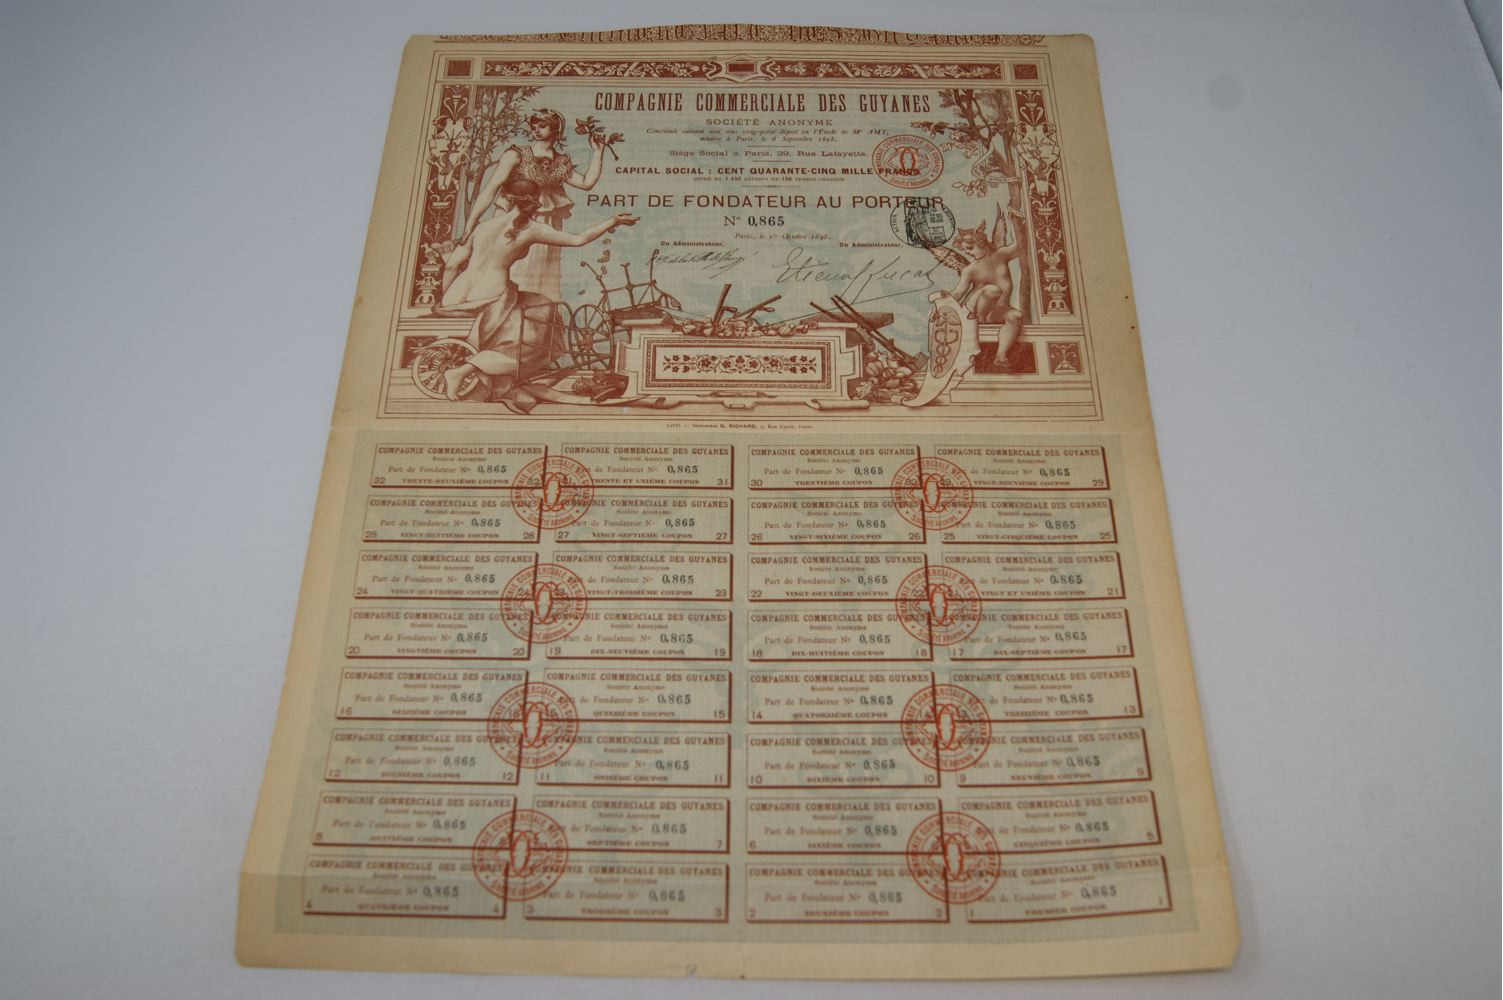 COMPAGNIE COMMERCIALE DES GUYANES
SOCIÉTÉ ANONYME
Constituée suivant acte sous seing-privé déposé en l'Étude de Me AMY,
notaire à Paris, le 8 Septembre 1898.
Siège Social à Paris, 39, Rue Lafayette.
CAPITAL SOCIAL : CENT QUARANTE-CINQ MILLE FRANCS
DIVISÉ EN 1.450 ACTIONS DE 100 FRANCS CHACUNE
PART DE FONDATEUR AU PORTEUR
No 0,865
Paris, le 1er Octobre 1898.
Un Administrateur, Un Administrateur,
Imprimerie G. RICHARD, 7, Rue Cadet, Paris.
COMPAGNIE COMMERCIALE DES GUYANES COMPAGNIE COMMERCIALE DES GUYANES COMPAGNIE COMMERCIALE DES GUYANES COMPAGNIE COMMERCIALE DES GUYANES
Société Anonyme Société Anonyme Société Anonyme Société Anonyme
Part de Fondateur No 0,865 Part de Fondateur No 0,865 Part de Fondateur No 0,865 Part de Fondateur No 0,865
32 TRENTE-DEUXIÈME COUPON 32 31 TRENTE ET UNIÈME COUPON 31 30 TRENTIÈME COUPON 30 29 VINGT-NEUVIÈME COUPON 29
COMPAGNIE COMMERCIALE DES GUYANES COMPAGNIE COMMERCIALE DES GUYANES COMPAGNIE COMMERCIALE DES GUYANES COMPAGNIE COMMERCIALE DES GUYANES
Société Anonyme Société Anonyme Société Anonyme Société Anonyme
Part de Fondateur No 0,865 Part de Fondateur No 0,865 Part de Fondateur No 0,865 Part de Fondateur No 0,865
28 VINGT-HUITIÈME COUPON 28 27 VINGT-SEPTIÈME COUPON 27 26 VINGT-SIXIÈME COUPON 26 25 VINGT-CINQUIÈME COUPON 25
COMPAGNIE COMMERCIALE DES GUYANES COMPAGNIE COMMERCIALE DES GUYANES COMPAGNIE COMMERCIALE DES GUYANES COMPAGNIE COMMERCIALE DES GUYANES
Société Anonyme Société Anonyme Société Anonyme Société Anonyme
Part de Fondateur No 0,865 Part de Fondateur No 0,865 Part de Fondateur No 0,865 Part de Fondateur No 0,865
24 VINGT-QUATRIÈME COUPON 24 23 VINGT-TROISIÈME COUPON 23 22 VINGT-DEUXIÈME COUPON 22 21 VINGT ET UNIÈME COUPON 21
COMPAGNIE COMMERCIALE DES GUYANES COMPAGNIE COMMERCIALE DES GUYANES COMPAGNIE COMMERCIALE DES GUYANES COMPAGNIE COMMERCIALE DES GUYANES
Société Anonyme Société Anonyme Société Anonyme Société Anonyme
Part de Fondateur No 0,865 Part de Fondateur No 0,865 Part de Fondateur No 0,865 Part de Fondateur No 0,865
20 VINGTIÈME COUPON 20 19 DIX-NEUVIÈME COUPON 19 18 DIX-HUITIÈME COUPON 18 17 DIX-SEPTIÈME COUPON 17
COMPAGNIE COMMERCIALE DES GUYANES COMPAGNIE COMMERCIALE DES GUYANES COMPAGNIE COMMERCIALE DES GUYANES COMPAGNIE COMMERCIALE DES GUYANES
Société Anonyme Société Anonyme Société Anonyme Société Anonyme
Part de Fondateur No 0,865 Part de Fondateur No 0,865 Part de Fondateur No 0,865 Part de Fondateur No 0,865
16 SEIZIÈME COUPON 16 15 QUINZIÈME COUPON 15 14 QUATORZIÈME COUPON 14 13 TREIZIÈME COUPON 13
COMPAGNIE COMMERCIALE DES GUYANES COMPAGNIE COMMERCIALE DES GUYANES COMPAGNIE COMMERCIALE DES GUYANES COMPAGNIE COMMERCIALE DES GUYANES
Société Anonyme Société Anonyme Société Anonyme Société Anonyme
Part de Fondateur No 0,865 Part de Fondateur No 0,865 Part de Fondateur No 0,865 Part de Fondateur No 0,865
12 DOUZIÈME COUPON 12 11 ONZIÈME COUPON 11 10 DIXIÈME COUPON 10 9 NEUVIÈME COUPON 9
COMPAGNIE COMMERCIALE DES GUYANES COMPAGNIE COMMERCIALE DES GUYANES COMPAGNIE COMMERCIALE DES GUYANES COMPAGNIE COMMERCIALE DES GUYANES
Société Anonyme Société Anonyme Société Anonyme Société Anonyme
Part de Fondateur No 0,865 Part de Fondateur No 0,865 Part de Fondateur No 0,865 Part de Fondateur No 0,865
8 HUITIÈME COUPON SEPTIÈME COUPON 7 6 SIXIÈME COUPON CINQUIÈME COUPON 5
COMPAGNIE COMMERCIALE DES GUYANES COMPAGNIE COMMERCIALE DES GUYANES COMPAGNIE COMMERCIALE DES GUYANES COMPAGNIE COMMERCIALE DES GUYANES
Société Anonyme Société Anonyme Société Anonyme Société Anonyme
Part de Fondateur No 0,865 Part de Fondateur No 0,865 Part de Fondateur No 0,865 Part de Fondateur No 0,865
4 QUATRIÈME COUPON 4 3 TROISIÈME COUPON 3 2 DEUXIÈME COUPON 2 1 PREMIER COUPON 1